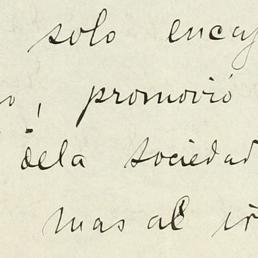 solo encaj
o, promovió
dela sociedad
mas al ir